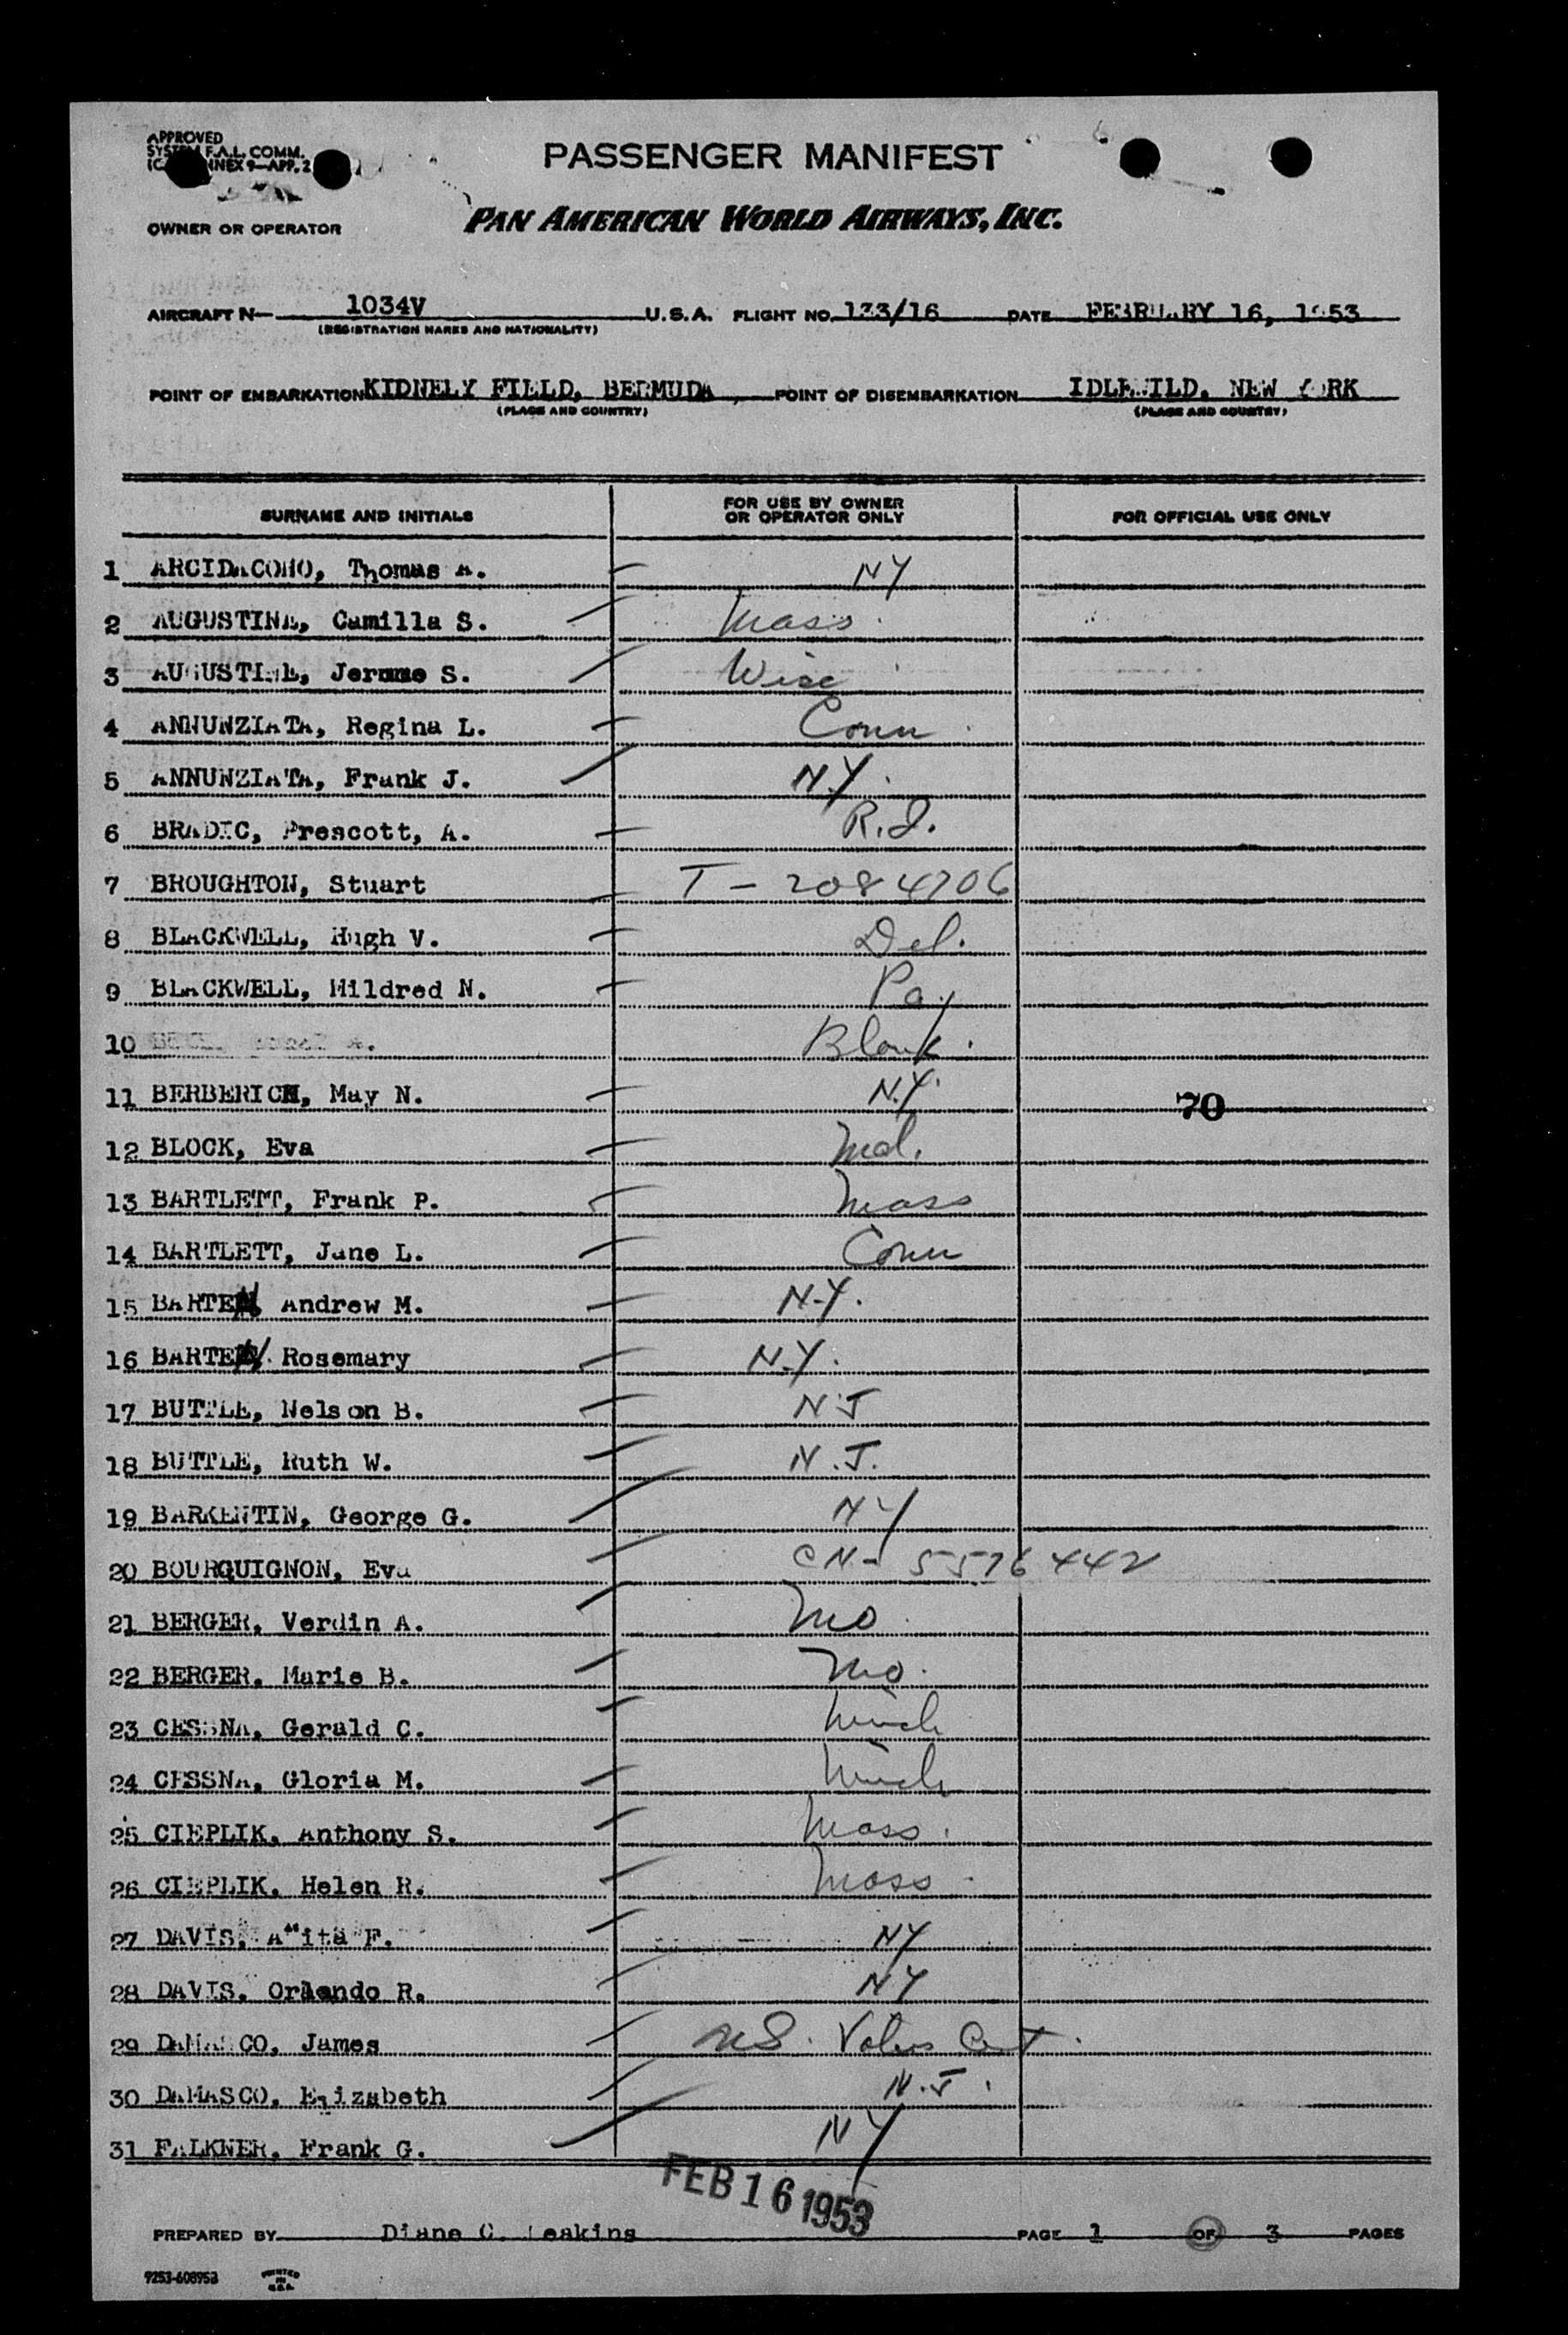 APPROVED
SYSTEM F.A.L. COMM.
ANNEX 9—APP. 2
PASSENGER MANIFEST
OWNER OR OPERATOR PAN AMERICAN WORLD AIRWAYS, INC.
AIRCRAFT N— 1034V U.S.A. FLIGHT NO. 133/16 DATE FEBRUARY 16, 1953
(REGISTRATION MARKS AND NATIONALITY)
POINT OF EMBARKATION KIDNELY FIELD, BERMUDA, POINT OF DISEMBARKATION IDLEWILD, NEW YORK
(PLACE AND COUNTRY) (PLACE AND COUNTRY)
SURNAME AND INITIALS FOR USE BY OWNER OR OPERATOR ONLY FOR OFFICIAL USE ONLY
1 ARCIDACONO, Thomas A. NY
2 AUGUSTINE, Camilla S. Mass.
3 AUGUSTINE, Jerome S. Wisc
4 ANNUNZIATA, Regina L. Conn.
5 ANNUNZIATA, Frank J. N.Y.
6 BRADIC, Prescott, A. R.I.
7 BROUGHTON, Stuart T - 2084706
8 BLACKWELL, Hugh V. Del.
9 BLACKWELL, Mildred N. Pa.
10 Blank.
11 BERBERICH, May N. N.Y. 70
12 BLOCK, Eva Md.
13 BARTLETT, Frank P. Mass
14 BARTLETT, Jane L. Conn
15 BARTEN, Andrew M. N.Y.
16 BARTEN, Rosemary N.Y.
17 BUTTLE, Nelson B. NJ
18 BUTTLE, Ruth W. N.J.
19 BARKENTIN, George G. NY
20 BOURQUIGNON, Eva CN- 5576442
21 BERGER, Verdin A. Mo.
22 BERGER, Marie B. Mo.
23 CESSNA, Gerald C. Mich
24 CESSNA, Gloria M. Mich
25 CIEPLIK, Anthony S. Mass.
26 CIEPLIK, Helen R. Mass.
27 DAVIS, Anita F. NY
28 DAVIS, Orlando R. NY
29 DAMASCO, James US. Cert.
30 DAMASCO, Elizabeth N.J.
31 FALKNER, Frank G. NY
FEB 16 1953
PREPARED BY Diane C. PAGE 1 OF 3 PAGES
9253-608953 PRINTED IN U.S.A.